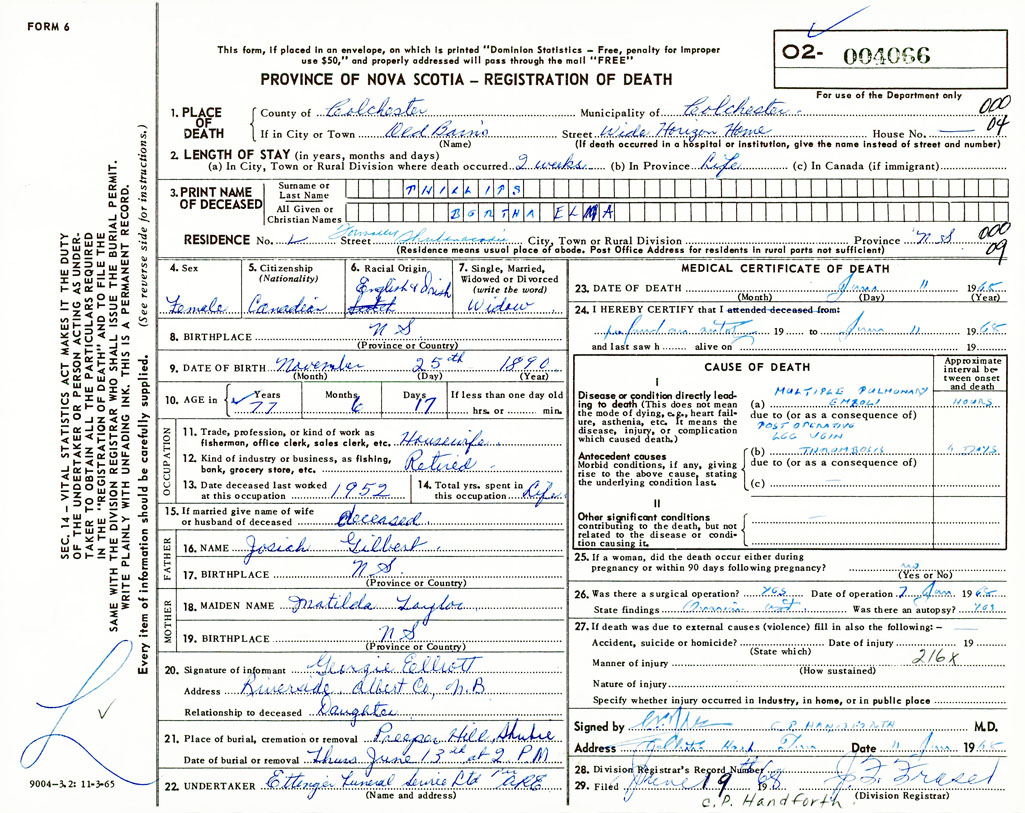 FORM 6
This form, if placed in an envelope, on which is printed "Dominion Statistics – Free, penalty for improper
use $50," and properly addressed will pass through the mail "FREE"
PROVINCE OF NOVA SCOTIA – REGISTRATION OF DEATH
O2- 004066
For use of the Department only
000
04
1. PLACE OF DEATH
County of Colchester Municipality of Colchester
If in City or Town Old Barns Street Wide Horizon Home House No. —
(Name) (If death occurred in a hospital or institution, give the name instead of street and number)
2. LENGTH OF STAY (in years, months and days)
(a) In City, Town or Rural Division where death occurred 2 weeks (b) In Province Life (c) In Canada (if immigrant)
3. PRINT NAME OF DECEASED
Surname or Last Name PHILLIPS
All Given or Christian Names BERTHA ELMA
RESIDENCE No. Street Formerly Shubenacadie City, Town or Rural Division Province N S
(Residence means usual place of abode. Post Office Address for residents in rural parts not sufficient)
000
09
4. Sex Female
5. Citizenship (Nationality) Canadian
6. Racial Origin English & Irish Scotch
7. Single, Married, Widowed or Divorced (write the word) Widow
8. BIRTHPLACE N S
(Province or Country)
9. DATE OF BIRTH November 25th 1890
(Month) (Day) (Year)
10. AGE in Years 77 Months 6 Days 17 If less than one day old hrs. or min.
OCCUPATION
11. Trade, profession, or kind of work as fisherman, office clerk, sales clerk, etc. Housewife
12. Kind of industry or business, as fishing, bank, grocery store, etc. Retired
13. Date deceased last worked at this occupation 1952
14. Total yrs. spent in this occupation Life
15. If married give name of wife or husband of deceased deceased
FATHER
16. NAME Josiah Gilbert
17. BIRTHPLACE N S
(Province or Country)
MOTHER
18. MAIDEN NAME Matilda Taylor
19. BIRTHPLACE N S
(Province or Country)
20. Signature of informant Georgie Elliott
Address Riverside Albert Co, N.B
Relationship to deceased Daughter
21. Place of burial, cremation or removal Preeper Hill, Shubie
Date of burial or removal Thurs June 13th at 2 PM
22. UNDERTAKER Ettinger Funeral Service Ltd
(Name and address)
MEDICAL CERTIFICATE OF DEATH
23. DATE OF DEATH June 11 1968
(Month) (Day) (Year)
24. I HEREBY CERTIFY that I attended deceased from:
19 to June 11 1968
and last saw h alive on 19
CAUSE OF DEATH
Approximate interval between onset and death
I
Disease or condition directly leading to death (This does not mean the mode of dying, e.g., heart failure, asthenia, etc. It means the disease, injury, or complication which caused death.)
(a) MULTIPLE PULMONARY EMBOLI HOURS
due to (or as a consequence of)
POST OPERATIVE
LEG VEIN
Antecedent causes
Morbid conditions, if any, giving rise to the above cause, stating the underlying condition last.
(b) THROMBOSIS 4 DAYS
due to (or as a consequence of)
(c) —
II
Other significant conditions contributing to the death, but not related to the disease or condition causing it.
25. If a woman, did the death occur either during pregnancy or within 90 days following pregnancy? no
(Yes or No)
26. Was there a surgical operation? YES Date of operation 7 June 1968
State findings Ovarian cyst Was there an autopsy? YES
27. If death was due to external causes (violence) fill in also the following: –
Accident, suicide or homicide? Date of injury 19
(State which)
216X
Manner of injury
(How sustained)
Nature of injury
Specify whether injury occurred in industry, in home, or in public place
Signed by C.P. HANDFORTH M.D.
Address Date 11 June 1968
28. Division Registrar's Record Number
29. Filed June 19 1968 J. F. Fraser
(Division Registrar)
C.P. Handforth
SEC. 14 – VITAL STATISTICS ACT MAKES IT THE DUTY
OF THE UNDERTAKER OR PERSON ACTING AS UNDER-
TAKER TO OBTAIN ALL THE PARTICULARS REQUIRED
IN THE "REGISTRATION OF DEATH" AND TO FILE THE
SAME WITH THE DIVISION REGISTRAR WHO SHALL ISSUE THE BURIAL PERMIT.
WRITE PLAINLY WITH UNFADING INK. THIS IS A PERMANENT RECORD.
Every item of information should be carefully supplied. (See reverse side for instructions.)
9004–3.2: 11-3-65